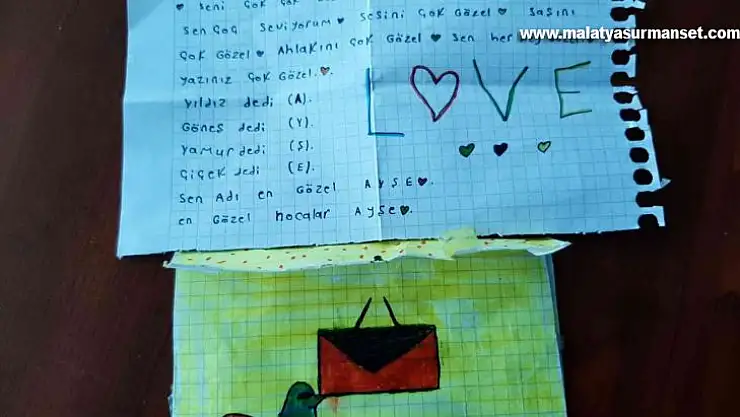 www.malatyasurmanset.com
♥ Seni çok
Sen çoç Seviyorum ♥ Sesini çok Güzel ♥ Saşını
çok Gözel ♥ Ahlakını çok Gözel ♥ Sen her
Yazınız çok Güzel.♥.
LOVE
Yıldız dedi (A).
Güneş dedi (Y).
Yamur dedi (Ş).
çiçek dedi (E).
Sen Adı en Gözel AYŞE♥.
en Güzel hocalar AYŞe♥.